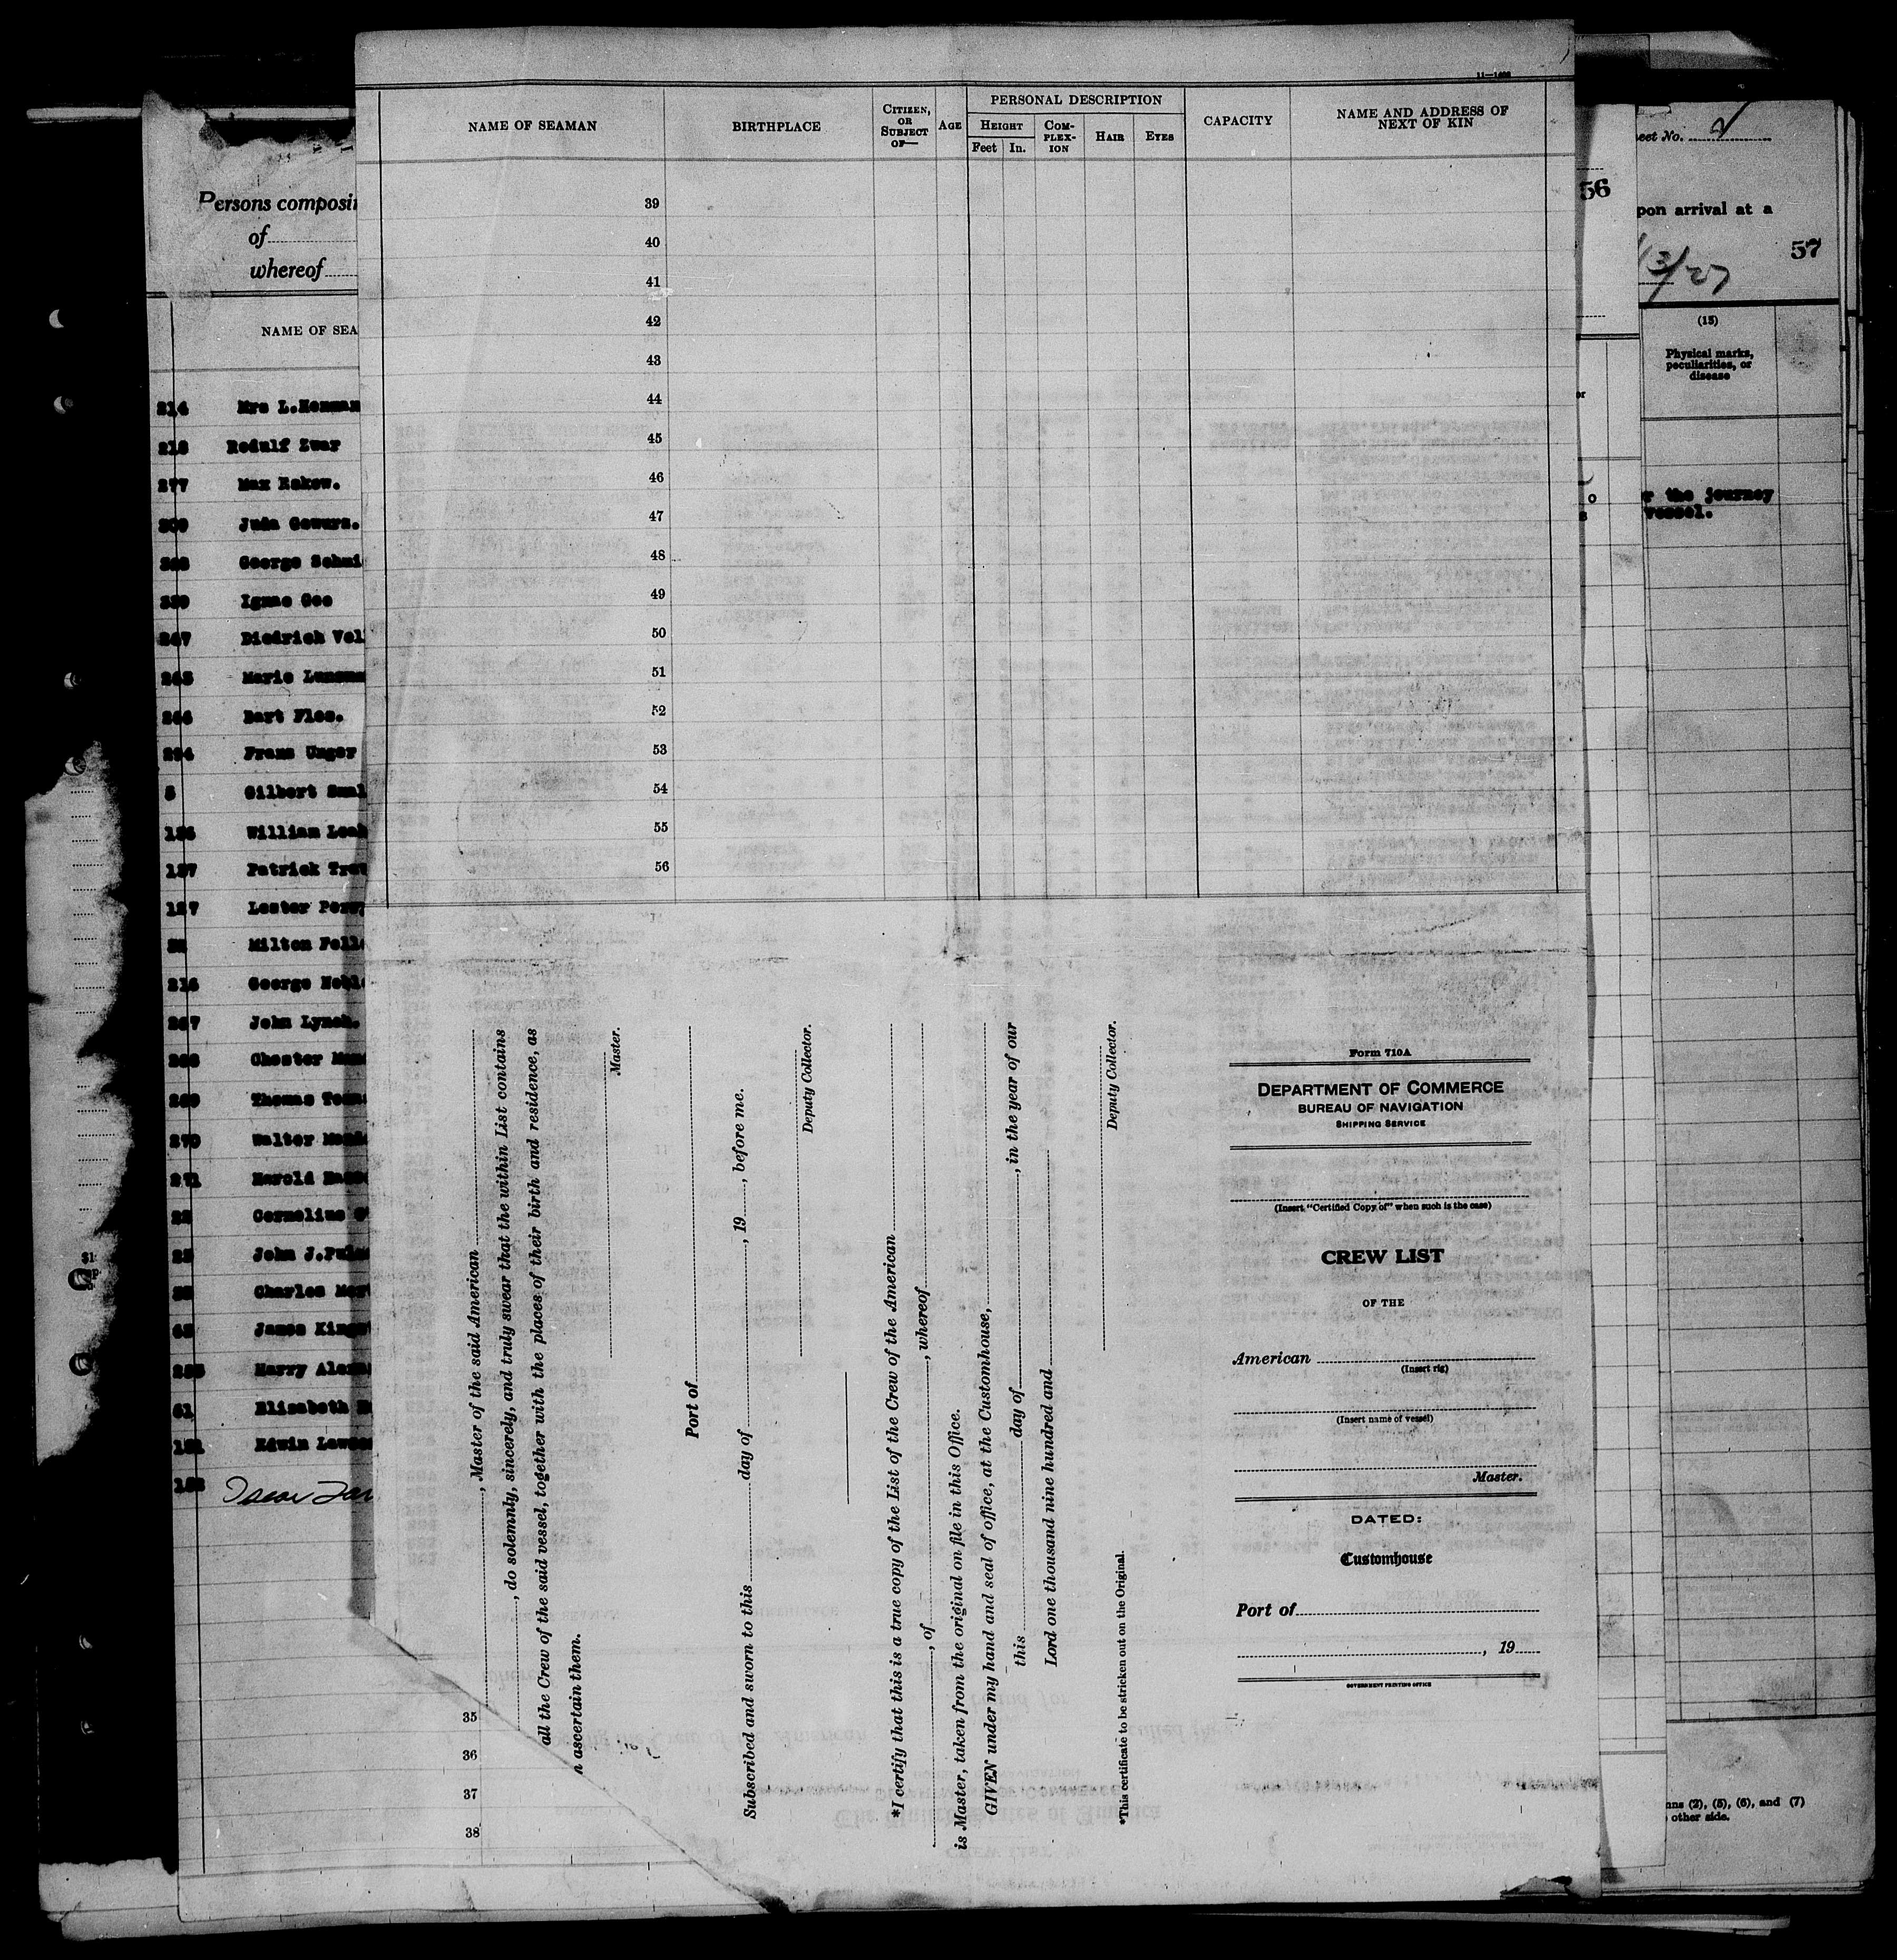 11—1499
NAME OF SEAMAN
BIRTHPLACE
CITIZEN, OR SUBJECT OF—
AGE
PERSONAL DESCRIPTION
HEIGHT
Feet
In.
COM-PLEX-ION
HAIR
EYES
CAPACITY
NAME AND ADDRESS OF NEXT OF KIN
39
40
41
42
43
44
45
46
47
48
49
50
51
52
53
54
55
56
Persons composi
of
whereof
NAME OF SEA
214 Mrs L.Hemman
218 Rodulf Zwar
277 Max Rakow.
309 Juda Gewurz.
George Schmi
Ignac Gee
Diedrich Vol
Marie Lunsma
Bart Flos.
294 Franz Unger
5 Gilbert Smal
136 William Leah
137 Patrick Tre
127 Lester Perr
Milton Fell
216 George Nobl
267 John Lynch.
268 Chester Man
269 Thomas Toan
270 Walter
271 Harold
22 Cornelius
25 John J.Pul
Charles Mor
James King
Harry Alex
61 Elizabeth
151 Edwin Lawso
152
35
36
37
38
, Master of the said American
, do solemnly, sincerely, and truly swear that the within List contains
all the Crew of the said vessel, together with the places of their birth and residence, as
n ascertain them.
Master.
Port of
Subscribed and sworn to this day of , 19 , before me.
Deputy Collector.
*I certify that this is a true copy of the List of the Crew of the American
, of , whereof
is Master, taken from the original on file in this Office.
GIVEN under my hand and seal of office, at the Customhouse,
this day of , in the year of our
Lord one thousand nine hundred and
Deputy Collector.
*This certificate to be stricken out on the Original.
Form 710A
DEPARTMENT OF COMMERCE
BUREAU OF NAVIGATION
SHIPPING SERVICE
(Insert "Certified Copy of" when such is the case)
CREW LIST
OF THE
American
(Insert rig)
(Insert name of vessel)
Master.
DATED:
Customhouse
Port of
, 19
GOVERNMENT PRINTING OFFICE
56
eet No. 2
pon arrival at a
57
13/27
(15)
Physical marks,
peculiarities, or
disease
r the journey
vessel.
mns (2), (5), (6), and (7)
other side.